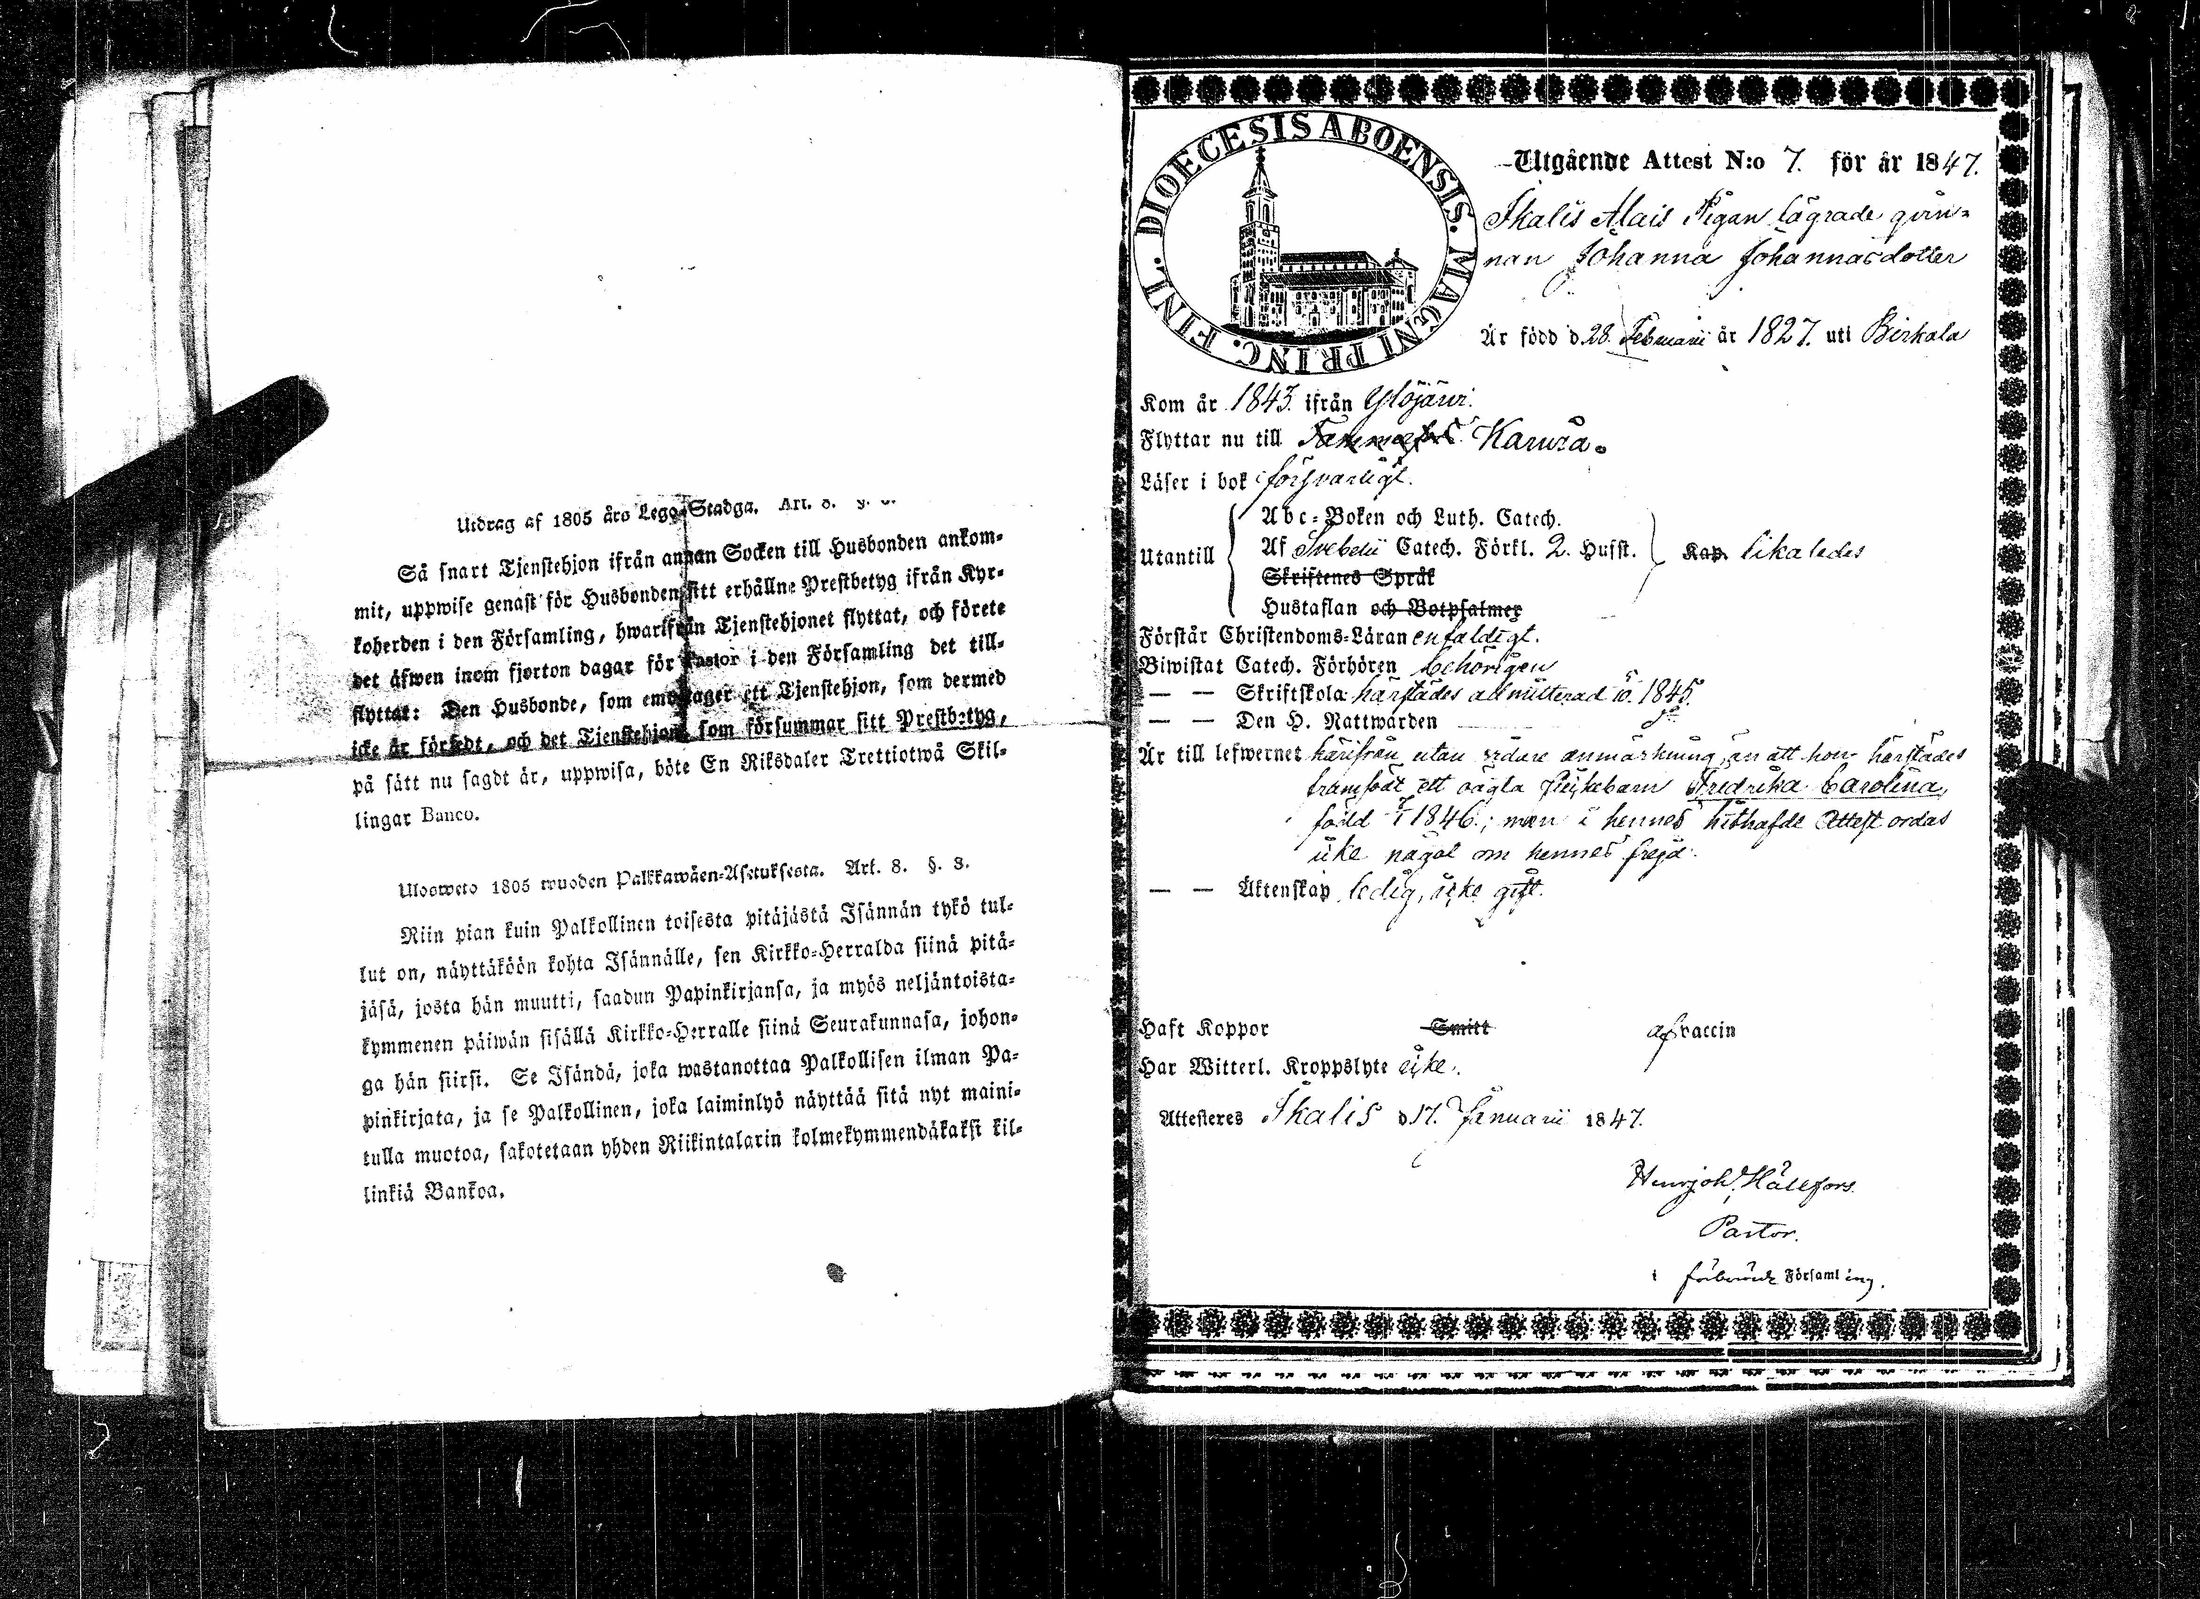 Utdrag af 1805 års Lego-Stadga. Art. 8.
Så snart Tjenstehjon ifrån annan Socken till Husbonden ankom-
mit, uppwise genast för Husbonden sitt erhållne Prestbetyg ifrån Kyr-
koherden i den Församling, hwarifrån Tjenstehjonet flyttat, och förete
det äfwen inom fjorton dagar för Pastor i den Församling det till-
flyttat: Den Husbonde, som emottager ett Tjenstehjon, som dermed
icke är försedt, och det Tjenstehjon, som försummar sitt Prestbetyg,
på sätt nu sagdt är, uppwisa, böte En Riksdaler Trettiotwå Skil-
lingar Banco.
Ulosweto 1805 wuoden Palkkawäen-Asetuksesta. Art. 8. §. 3.
Niin pian kuin Palkollinen toisesta pitäjästä Isännän tykö tul-
lut on, näyttäköön kohta Isännälle, sen Kirkko-Herralda siinä pitä-
jäsä, josta hän muutti, saadun Papinkirjansa, ja myös neljäntoista-
kymmenen päiwän sisällä Kirkko-Herralle siinä Seurakunnasa, johon-
ga hän siirsi. Se Isändä, joka wastanottaa Palkollisen ilman Pa-
pinkirjata, ja se Palkollinen, joka laiminlyö näyttää sitä nyt maini-
tulla muotoa, sakotetaan yhden Riikintalarin kolmekymmendäkaksi kil-
linkiä Bankoa.
DIOECESIS ABOENSIS. MAGNI PRINC. FINL.
Utgående Attest N:o 7. för år 1847.
Ikalis Alais Pigan lägrade qvin=
nan Johanna Johannasdotter
Är född d. 28. Februarii år 1827. uti Birkala
Kom år 1843. ifrån Ylöjärvi.
Flyttar nu till Tammerfors Karvia.
Läser i bok försvarligt.
Utantill
Abc-Boken och Luth. Catech.
Af Svebelii Catech. Förkl. 2. Husst.
Kap. likaledes
Skriftenes Språk
Hustaflan och Botpsalmer
Förstår Christendoms-Läran enfaldigt.
Biwistat Catech. Förhören behörigen
— — Skriftskola härstädes admitterad 1845.
— — Den H. Nattwarden
Är till lefwernet härifrån utan vidare anmärkning, än att hon härstädes
framfödt ett oägta flickebarn Fredrika Carolina,
född 1846.; men i hennes hithafde Attest ordas
icke något om hennes frejd.
— — Äktenskap ledig, icke gift.
Haft Koppor Smitt af vaccin
Har Witterl. Kroppslyte icke.
Attesteres Ikalis d. 17. Januarii 1847.
Henr. Joh. Hällfors.
Pastor.
i förberörde Församling.